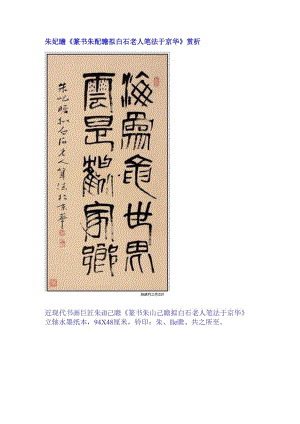 朱妃瞻《篆书朱配瞻拟白石老人笔法于京华》赏析
海為龍世界
雲是鶴家鄉
朱屺瞻拟白石老人筆法於京華
近现代书画巨匠朱诅己瞻《篆书朱山己瞻拟白石老人笔法于京华》
立轴水墨纸本，94X48厘米，钤印：朱、Be瞻、共之所至。